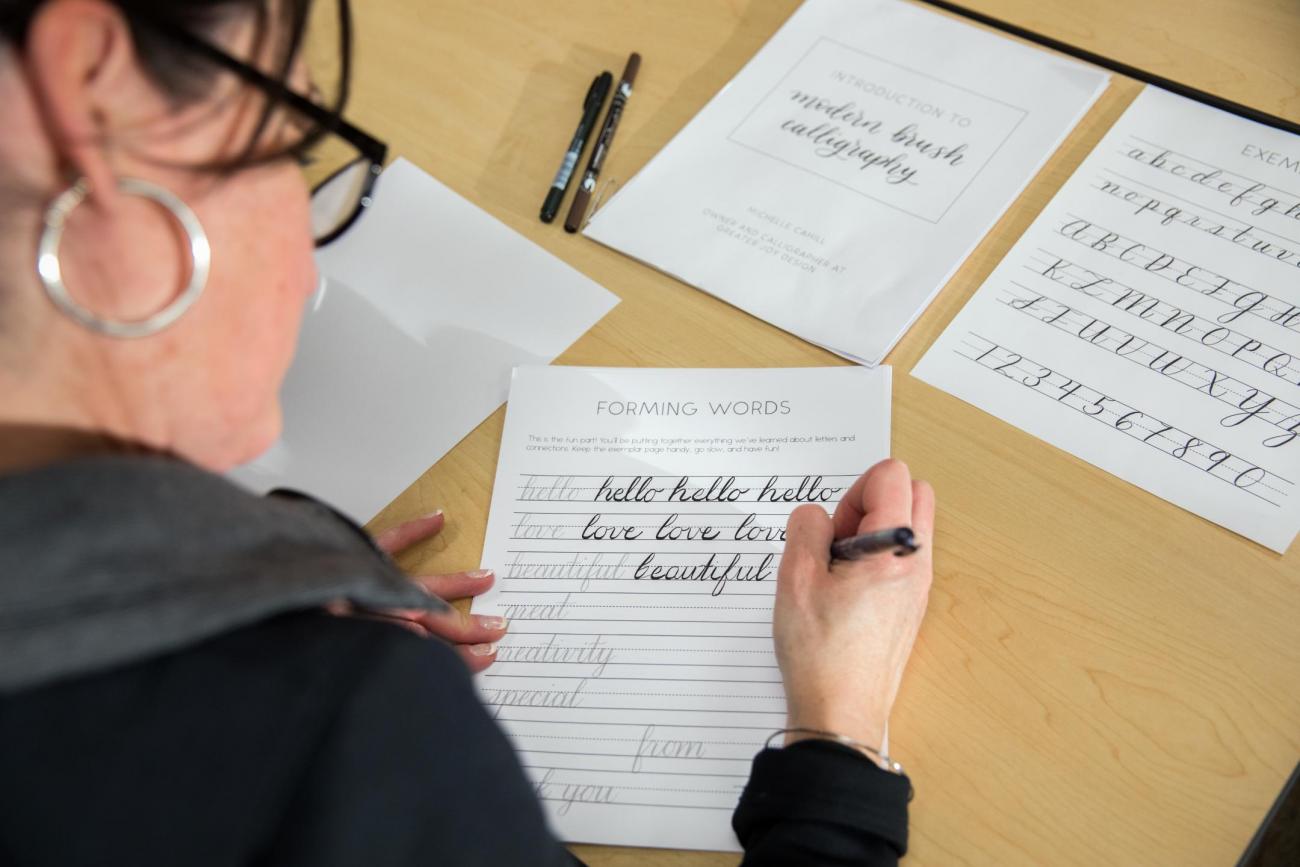 INTRODUCTION TO
modern brush
calligraphy
MICHELLE CAHILL
OWNER AND CALLIGRAPHER AT
GREATER JOY DESIGN
EXEM
a b c d e f g h
n o p q r s t u v
A B C D E F G H
K L M N O P Q
S T U V W X Y Z
1 2 3 4 5 6 7 8 9 0
FORMING WORDS
This is the fun part! You'll be putting together everything we've learned about letters and
connections. Keep the exemplar page handy, go slow, and have fun!
hello hello hello hello
love love love love
beautiful beautiful
great
creativity
special
from
you